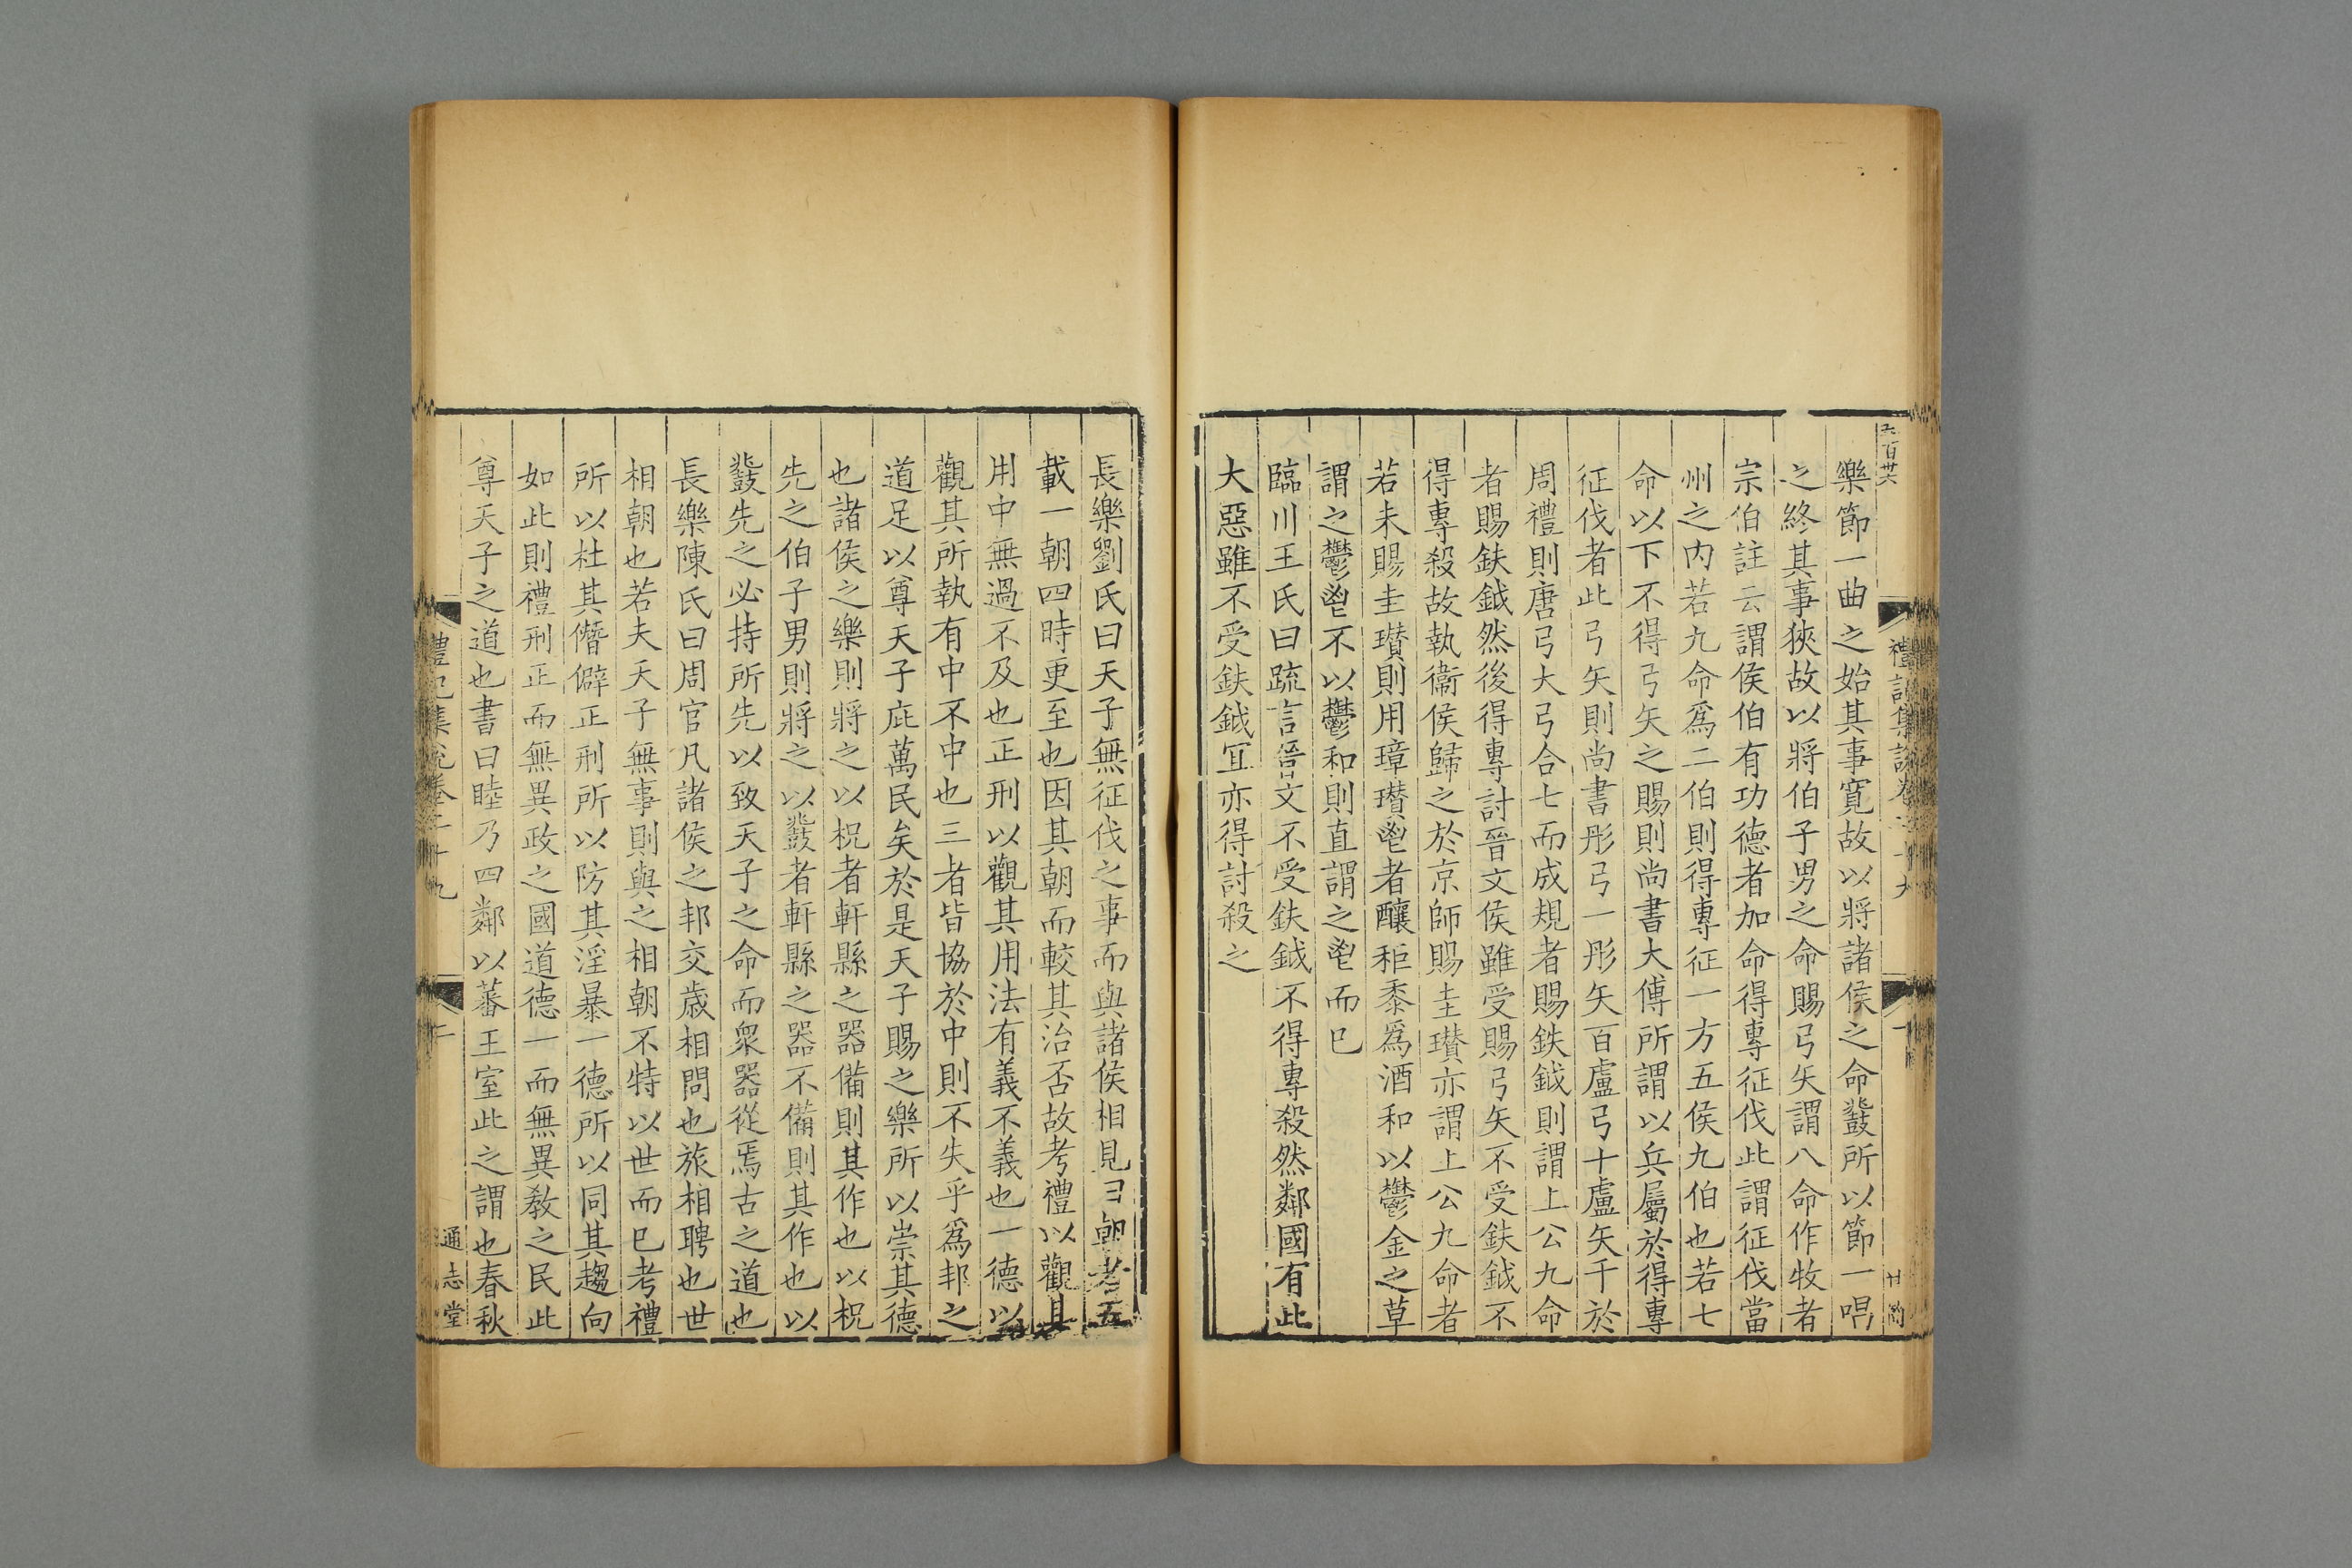 樂節一曲之始其事寬故以將諸侯之命鼗所以節一唱
之終其事狹故以將伯子男之命賜弓矢謂八命作牧者
宗伯註云謂侯伯有功德者加命得專征伐此謂征伐當
州之內若九命爲二伯則得專征一方五侯九伯也若七
命以下不得弓矢之賜則尚書大傳所謂以兵屬於得專
征伐者此弓矢則尚書彤弓一彤矢百盧弓十盧矢千於
周禮則唐弓大弓合七而成規者賜鈇鉞則謂上公九命
者賜鈇鉞然後得專討晉文侯雖受賜弓矢不受鈇鉞不
得專殺故執衞侯歸之於京師賜圭瓚亦謂上公九命者
若未賜圭瓚則用璋瓚鬯者釀秬黍爲酒和以鬱金之草
謂之鬱鬯不以鬱和則直謂之鬯而已
臨川王氏曰疏言晉文不受鈇鉞不得專殺然鄰國有此
大惡雖不受鈇鉞冝亦得討殺之
長樂劉氏曰天子無征伐之事而與諸侯相見曰朝考五
載一朝四時更至也因其朝而較其治否故考禮以觀其
用中無過不及也正刑以觀其用法有義不義也一德以
觀其所執有中不中也三者皆協於中則不失乎爲邦之
道足以尊天子庇萬民矣於是天子賜之樂所以崇其德
也諸侯之樂則將之以柷者軒縣之器備則其作也以柷
先之伯子男則將之以鼗者軒縣之器不備則其作也以
鼗先之必持所先以致天子之命而衆器從焉古之道也
長樂陳氏曰周官凡諸侯之邦交歲相問也旅相聘也世
相朝也若夫天子無事則與之相朝不特以世而已考禮
所以杜其僭僻正刑所以防其淫暴一德所以同其趨向
如此則禮刑正而無異政之國道德一而無異敎之民此
尊天子之道也書曰睦乃四鄰以蕃王室此之謂也春秋
禮記集說卷二十九
二
通志堂